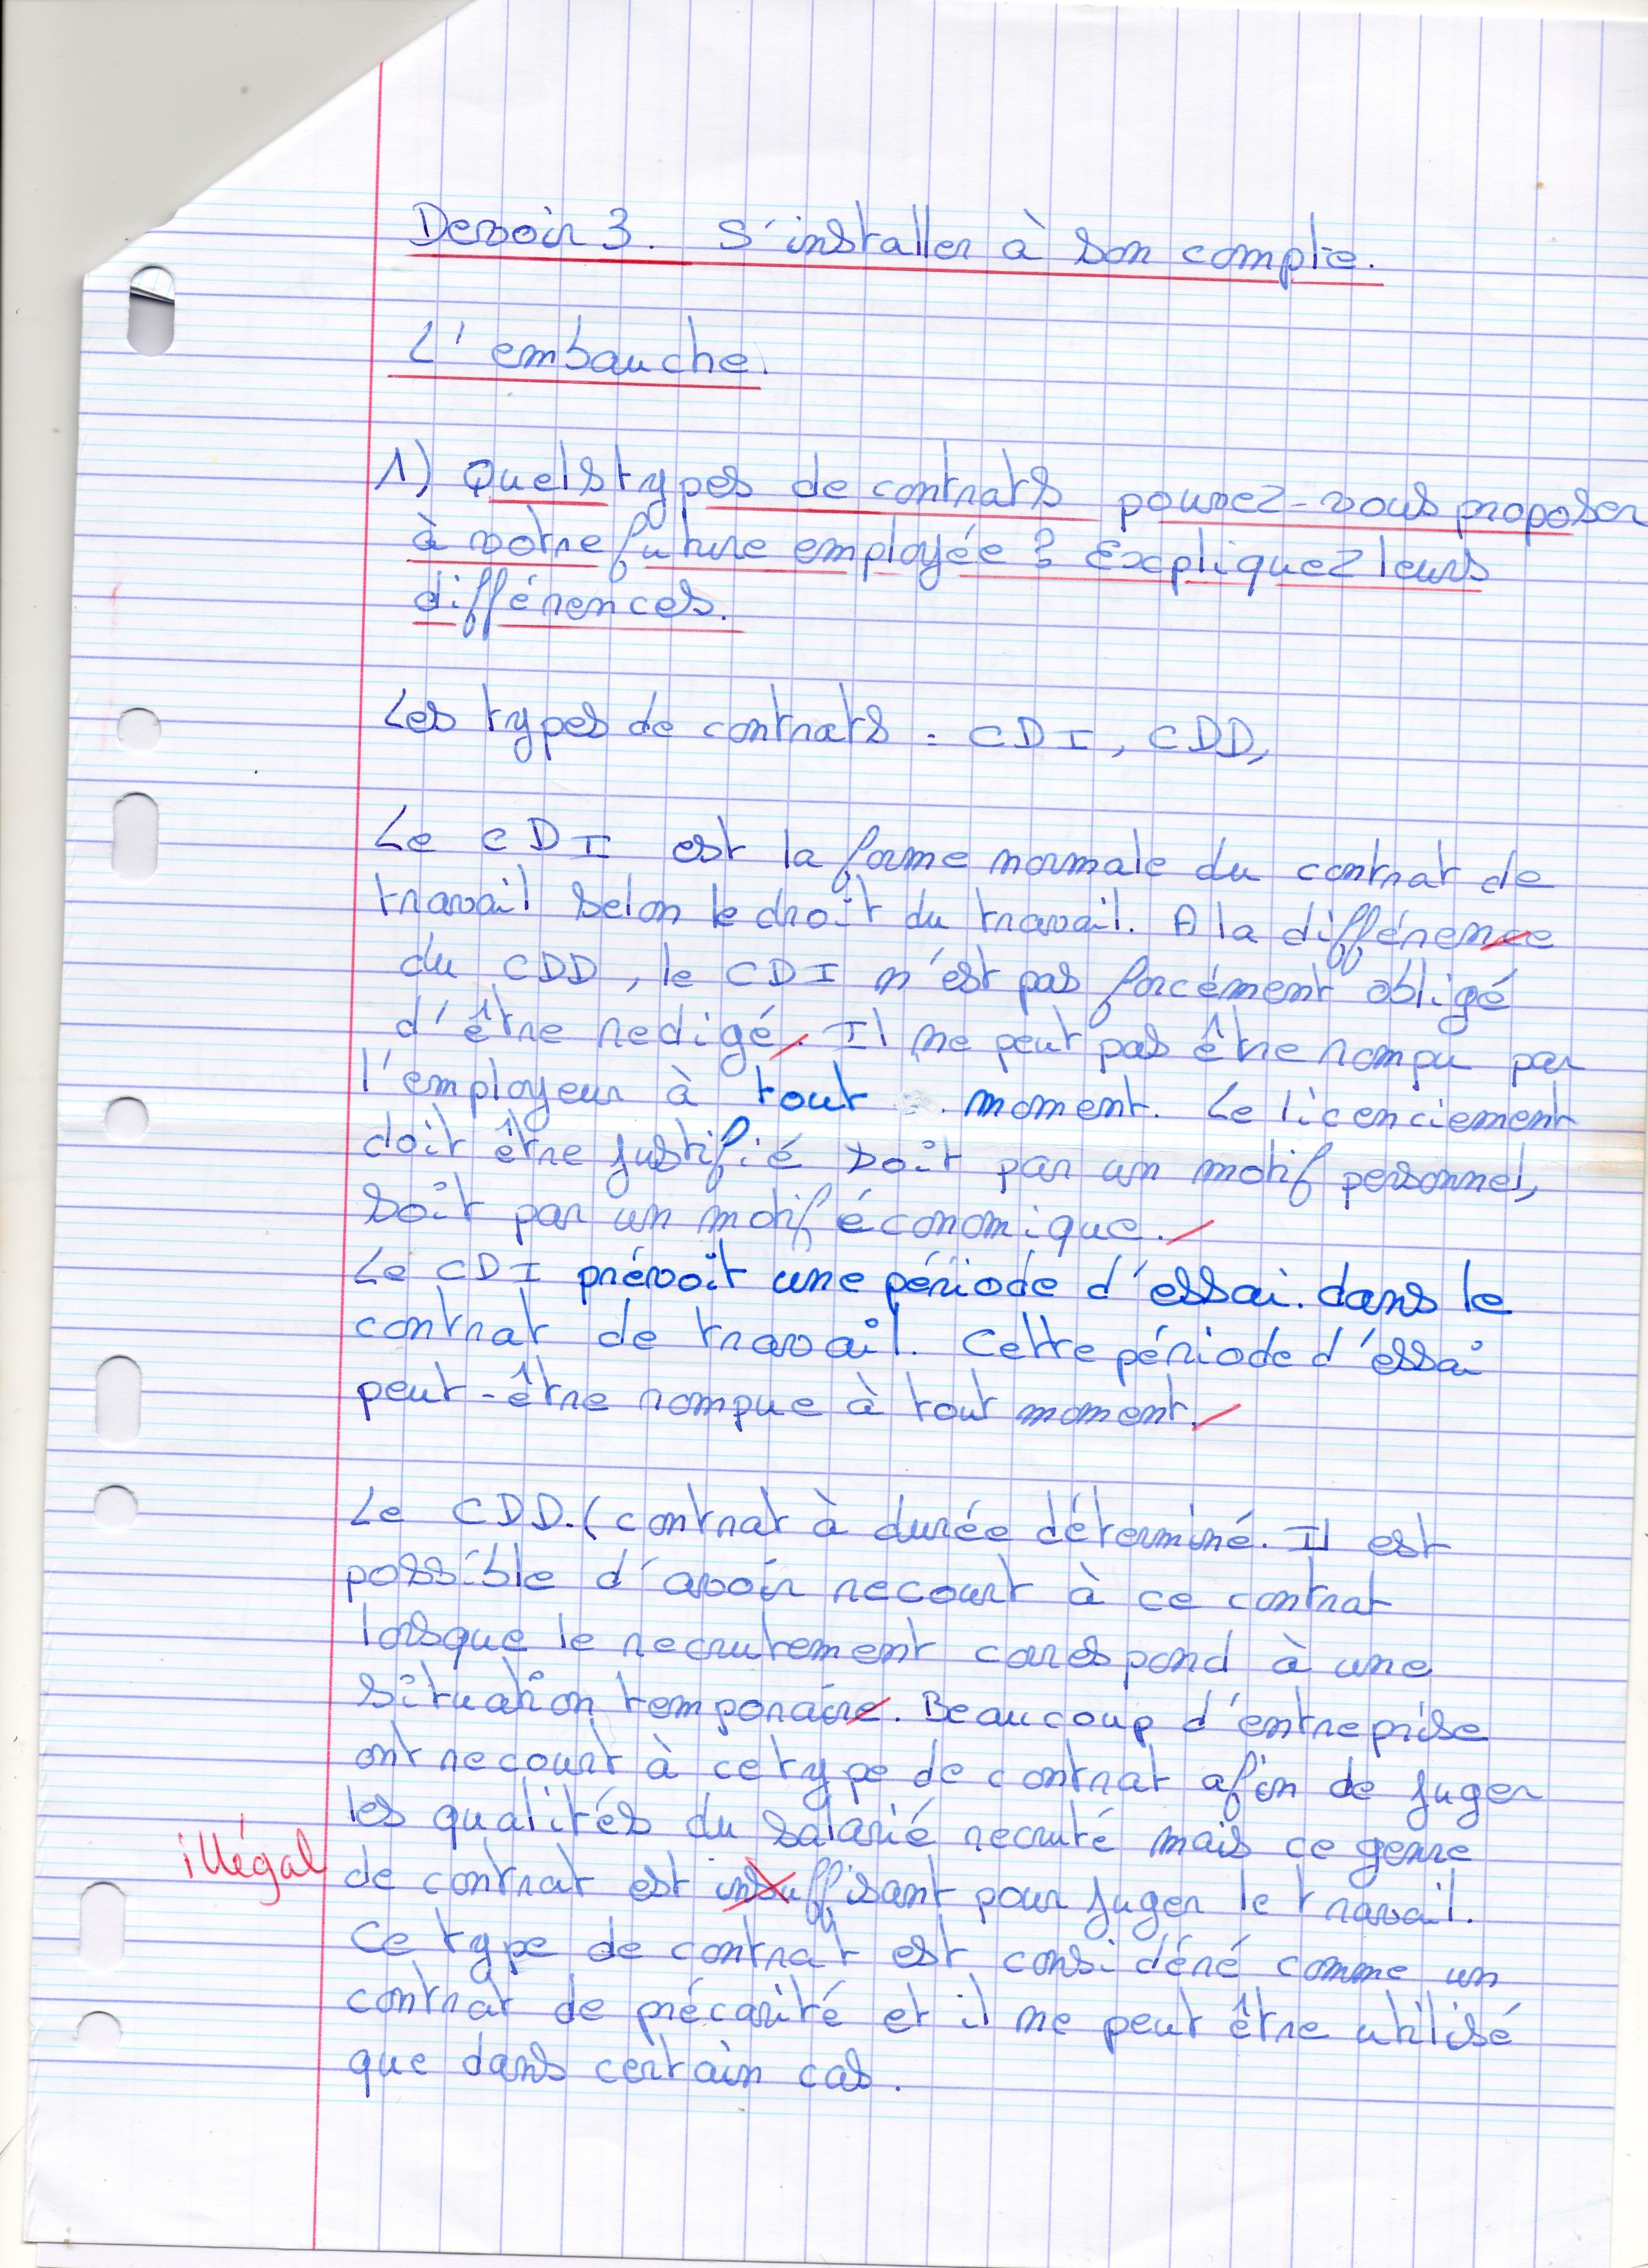 Devoir 3. S'installer à son compte.
L'embauche.
1) Quels types de contrats pouvez-vous proposer
à votre future employée ? Expliquez leurs
différences.
Les types de contrats : CDI, CDD,
Le CDI est la forme normale du contrat de
travail selon le droit du travail. A la différence
du CDD, le CDI n'est pas forcément obligé
d'être redigé. Il ne peut pas être rompu par
l'employeur à tout moment. Le licenciement
doit être justifié soit par un motif personnel,
soit par un motif économique.
Le CDI prévoit une période d'essai. dans le
contrat de travail. Cette période d'essai
peut-être rompue à tout moment.
Le CDD. (contrat à durée déterminé. Il est
possible d'avoir recourt à ce contrat
lorsque le recrutement correspond à une
situation temporaire. Beaucoup d'entreprise
ont recourt à ce type de contrat afin de juger
les qualités du salarié recruté mais ce genre
illégal de contrat est insuffisant pour juger le travail.
Ce type de contrat est considéré comme un
contrat de précarité et il ne peut être utilisé
que dans certain cas.